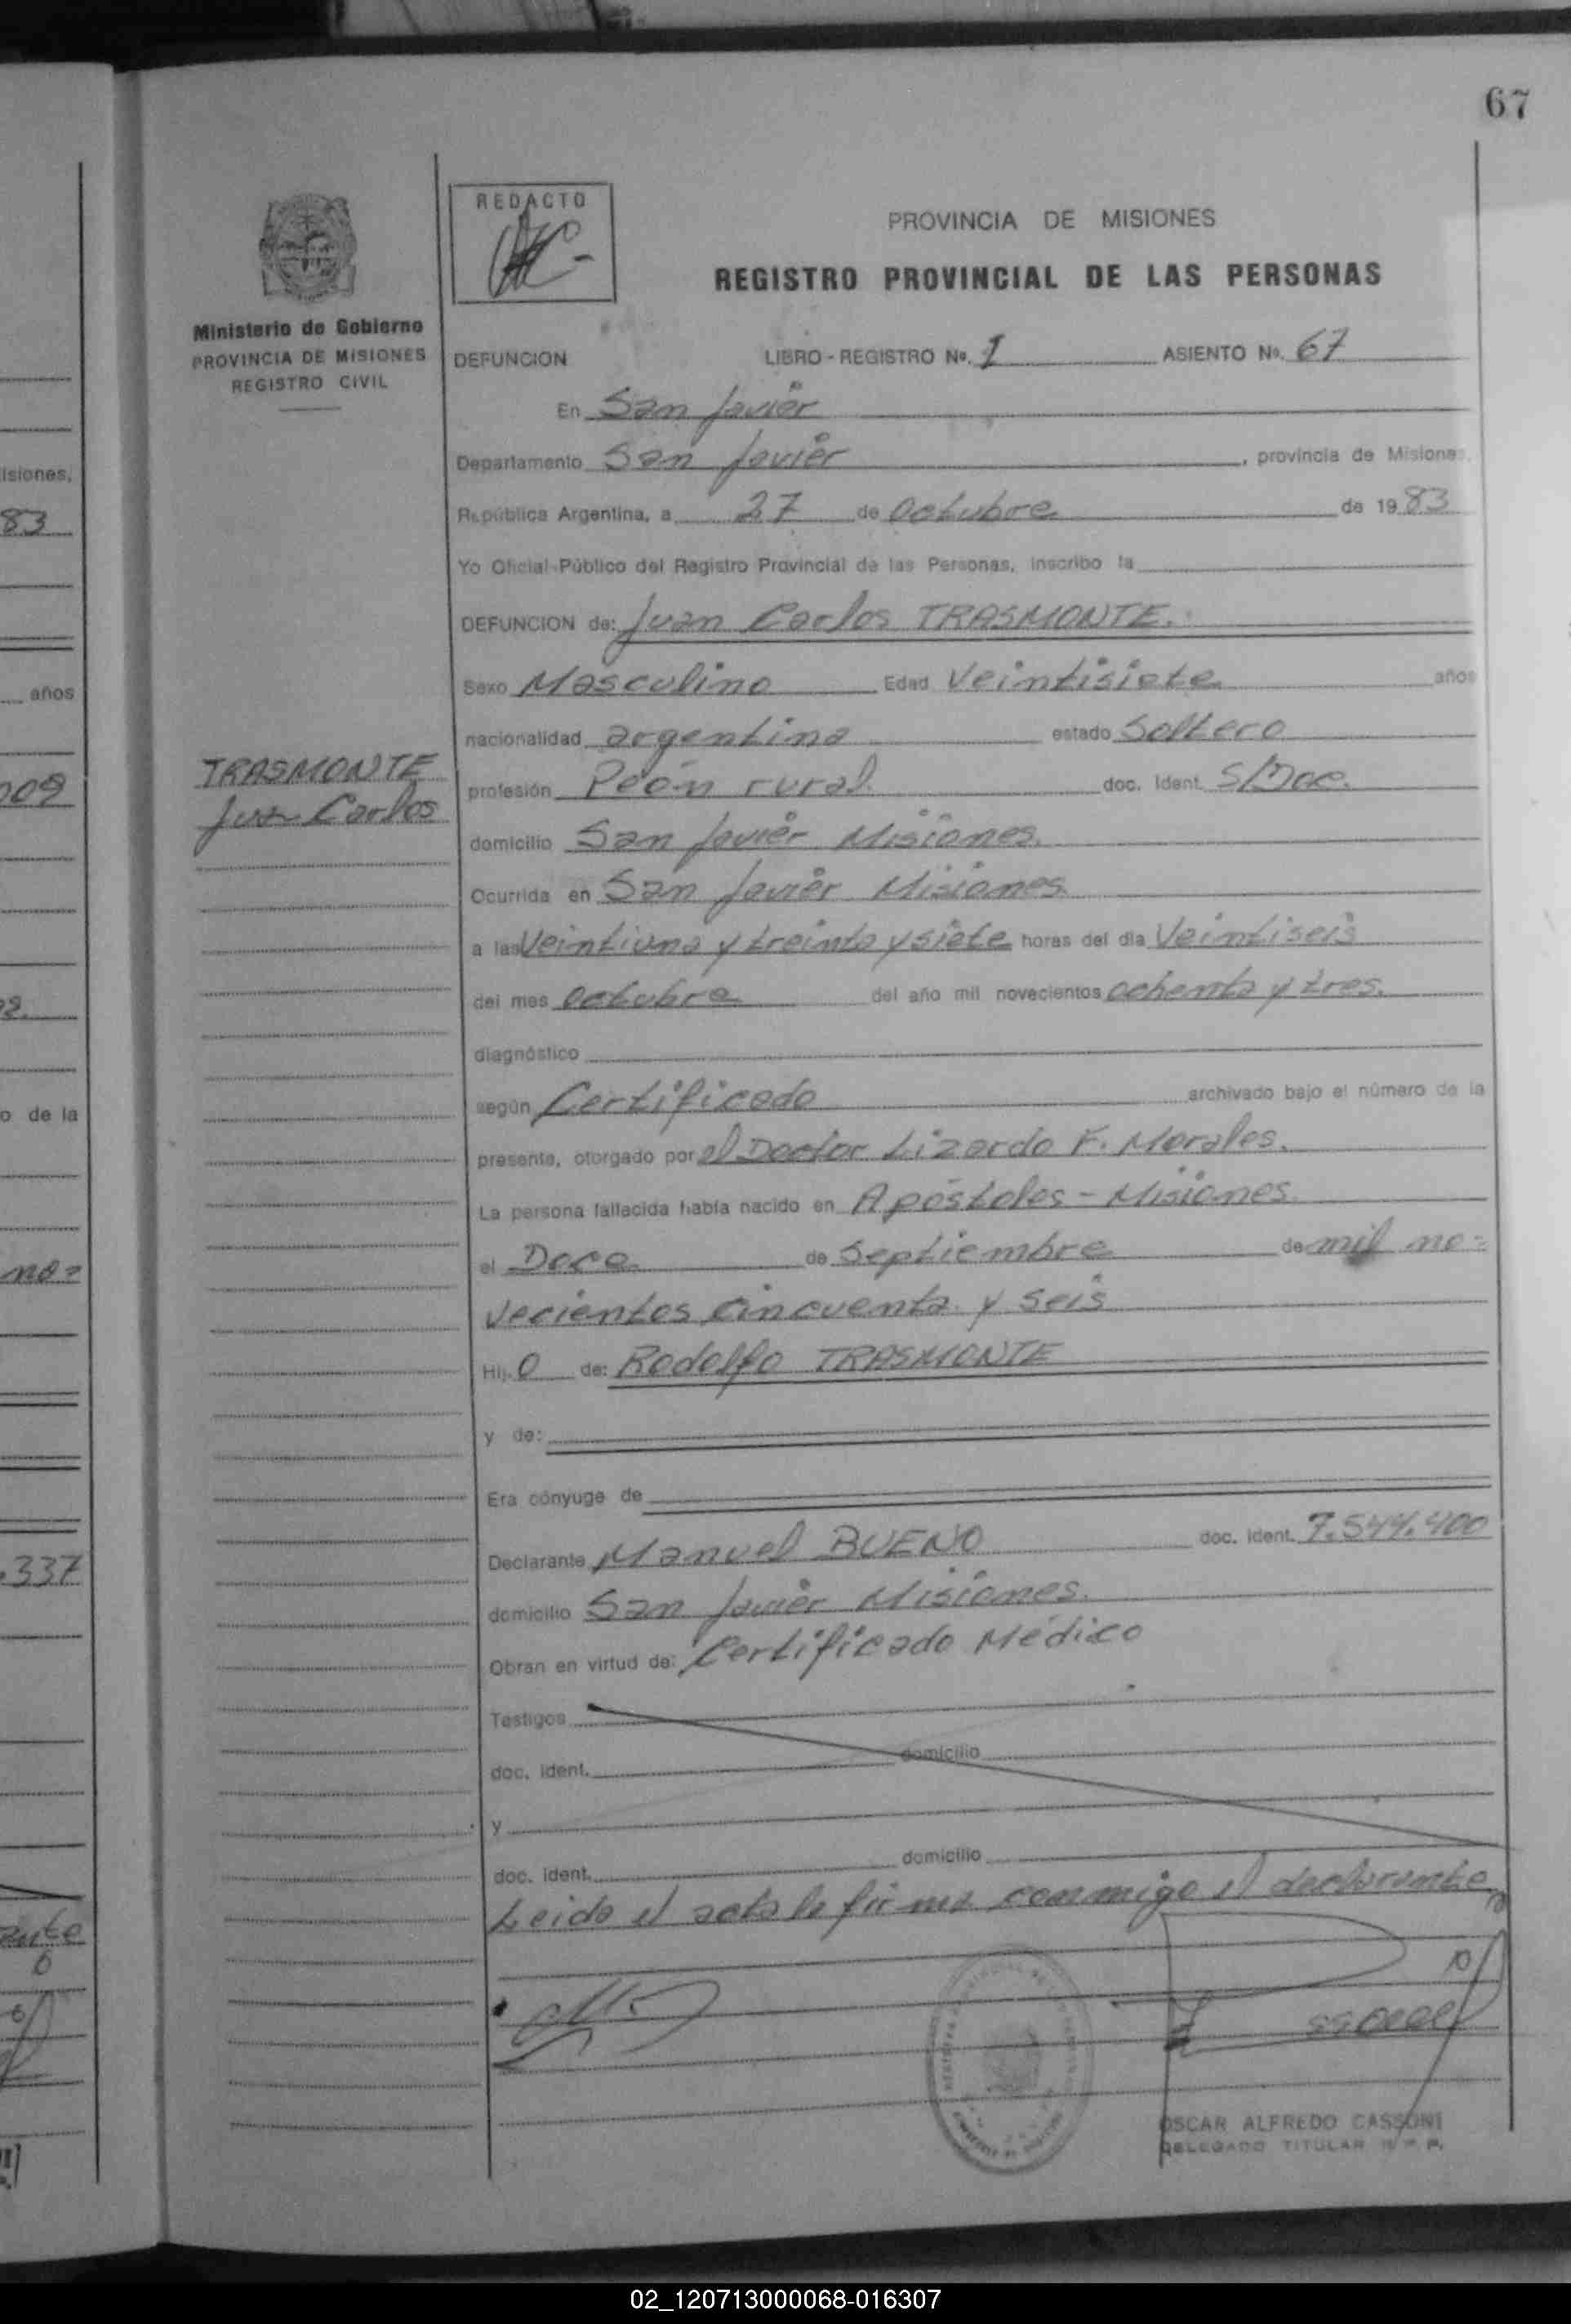 67
REDACTO
PROVINCIA DE MISIONES
REGISTRO PROVINCIAL DE LAS PERSONAS
Ministerio de Gobierno
PROVINCIA DE MISIONES
REGISTRO CIVIL
DEFUNCION LIBRO - REGISTRO No. 1 ASIENTO No. 67
En San Javier
Departamento San Javier, provincia de Misiones,
República Argentina, a 27 de Octubre de 1983
Yo Oficial Público del Registro Provincial de las Personas, inscribo la
DEFUNCION de: Juan Carlos TRASMONTE.
Sexo Masculino Edad Veintisiete años
nacionalidad argentina estado Soltero
TRASMONTE
Juan Carlos
profesión Peón rural. doc. Ident. S/Doc.
domicilio San Javier Misiones.
Ocurrida en San Javier Misiones.
a las Veintiuna y treinta y siete horas del día Veintiseis
del mes Octubre del año mil novecientos ochenta y tres.
diagnóstico
según Certificado archivado bajo el número de la
presente, otorgado por el Doctor Lizardo F. Morales.
La persona fallecida había nacido en Apóstoles - Misiones.
el Doce de Septiembre de mil no=
vecientos cincuenta y seis
Hij. O de: Rodolfo TRASMONTE
y de:
Era cónyuge de
Declarante Manuel BUENO doc. Ident. 7.544.400
domicilio San Javier Misiones.
Obran en virtud de: Certificado Médico
Testigos
doc. Ident. domicilio
y
doc. Ident. domicilio
Leida el acta la firma conmigo el declarante
OSCAR ALFREDO CASSONI
DELEGADO TITULAR R. P. P.
isiones,
83
años
009
o de la
no=
.337
02_120713000068-016307